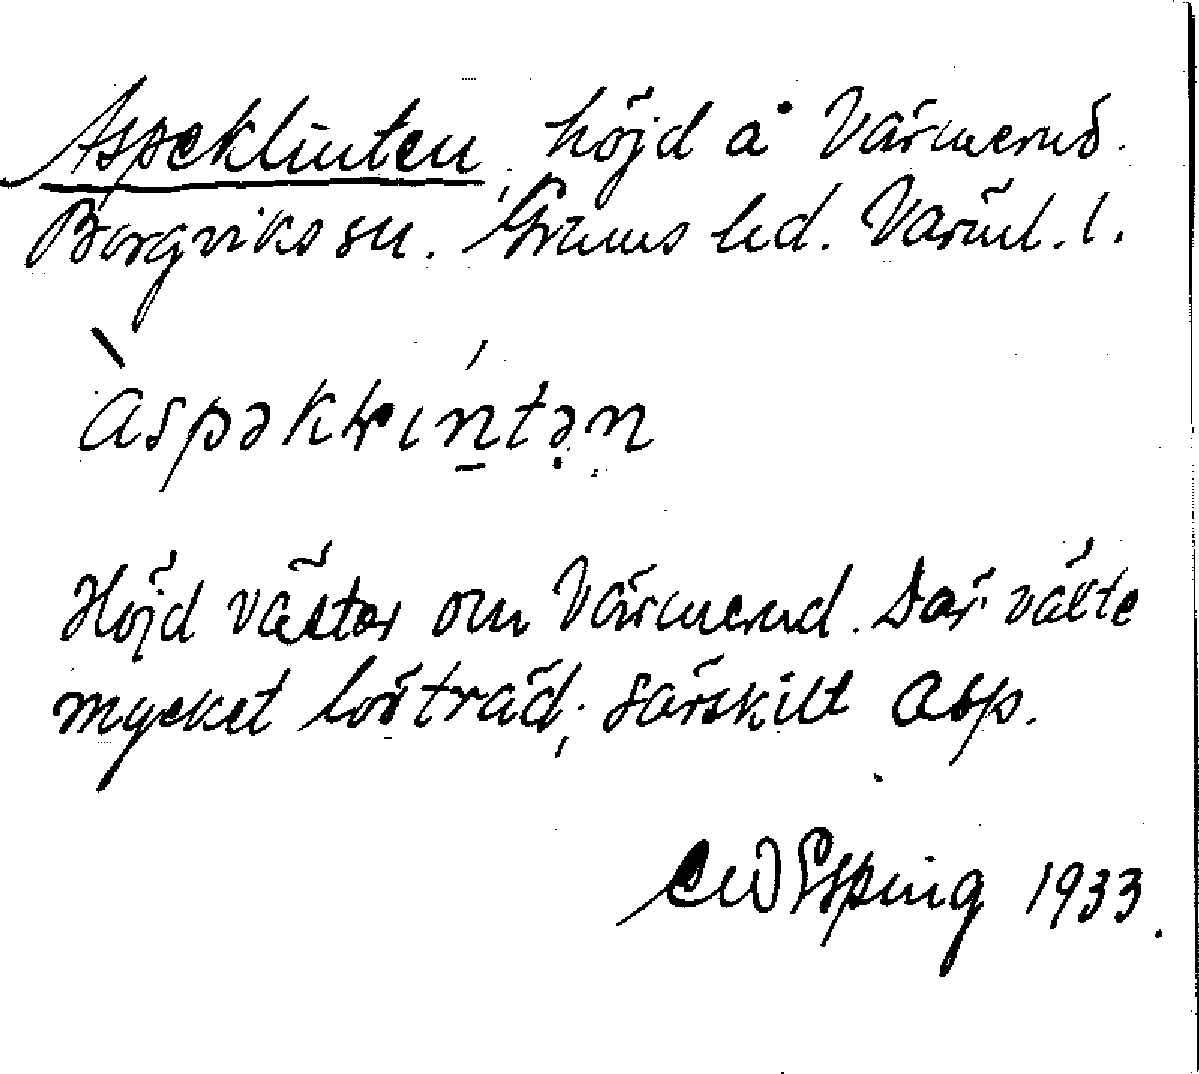 Aspeklinten, höjd å Värmerud.
Borgviks sn. Grums hd. Värml. l.
àspəkḷıńtə̣ṇ
Höjd väster om Värmerud. Där växte
mycket lövträd, särskilt asp.
C W Esping 1933.